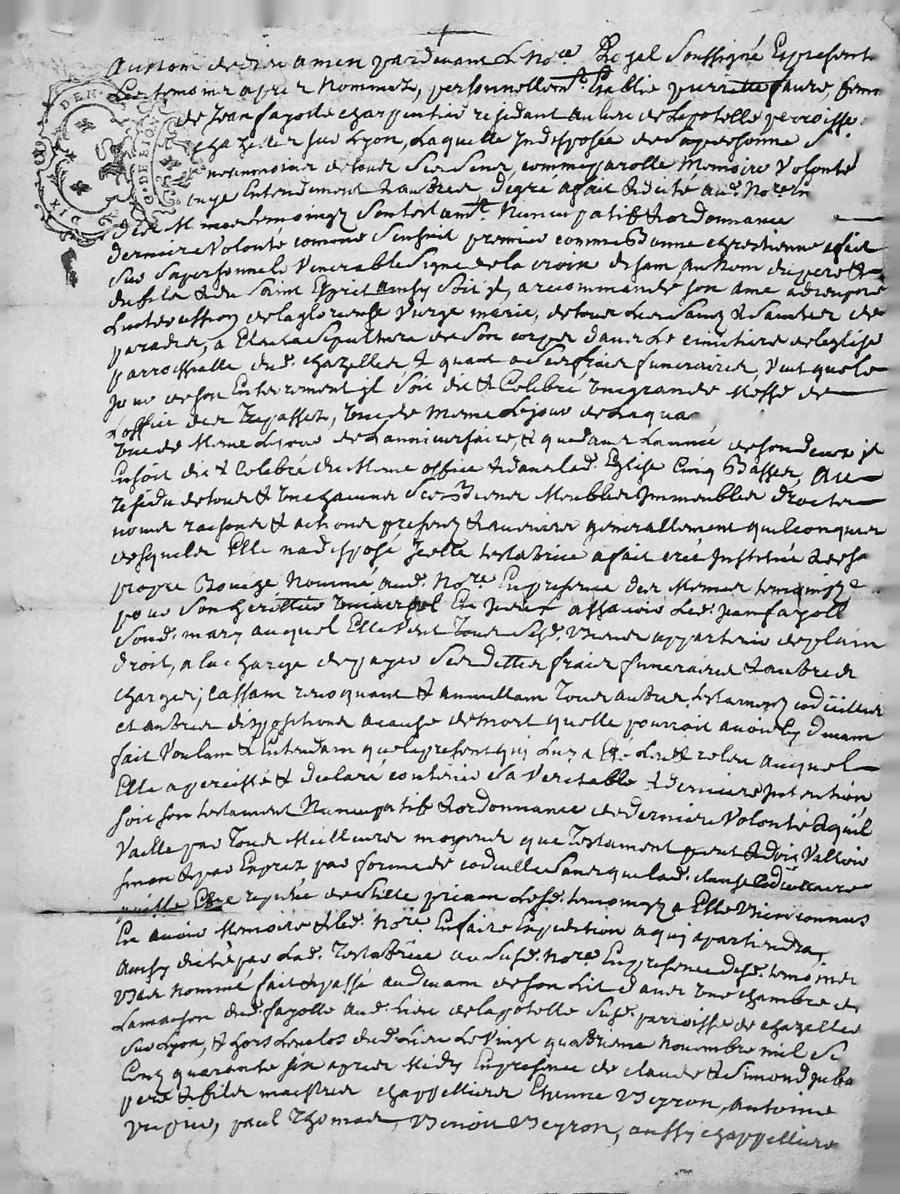 Au nom de dieu amen pardevant le No.re Rogel Soussigné Et present
Les temoins apres Nommez, personnellem.t Establie pierrette faure, femme
de Jean fayolle charpentier residant au lieu de Lapotelle perroisse
chazelles sur Lyon, Laquelle Indisposée de sa personne
neanmoins de tous ses sens, comme parolle Memoire Volonté
Entendement & autres degre a fait & dicté aud. No.re
des M temoins Son testam.t Nuncupatif & ordonnance
derniere Volonté comme Sensuit premier comme Bonne chrestienne a fait
Sur Sa personne le Venerable Signe de la croix disam au Nom du pere &
du fils & du Saint Esprit Ainsy Soit il, a recommandé son ame a dieu par
Lintercession de la glorieuse Vierge marie, de tous Les Saincts & Saintes de
paradis, a Eslu La Sepulture de Son corps dans Le cimetiere de leglise
parroissialle dud. chazelles & quant a Ses frais funeraires, Veut que le
Jour de son Enterrement il Soit dit & Celebré Une grande Messe de
L'office des Trepassez, Une de Meme Le jour de La qua
Une de Meme Le jour de Lanniversaire, & que dans Lannée de son deces il
En soit dit & Celebré du Meme office & dans lad. Eglise Cinq Basses, Au
residu de tous & Un chacuns Ses Biens Meubles Immeubles droits
noms raisons & actions presents & avenirs generallement quelconques
desquels Elle na disposé Icelle testatrice a fait creé Institué & de sa
propre Bouche Nommé aud. No.re En presence des Memes temoins
pour Son heritier Universel En Jceux assavoir Led. Jean fayoll
Sond. mary auquel Elle Veut Tous Sesd. Biens appartenir de plain
droit, a la charge de payer Ses dettes frais funeraires & autres
charges; Cassam revoquant & annullam Tous autres testaments codicilles
et autres dispositions a cause de mort quelle pourroit avoir cy devam
fait Voulam & Entendam que le present qui Luy a Eté Lu & relu auquel
Elle a persisté & declaré contenir Sa Veritable & derniere Intention
soit son testament Nuncupatif & ordonnance de derniere Volonté & quil
Vaille par Tous Meilleurs moyens que Testament peut & doit Valloir
sinon & par Exprez par forme de codicille Sans que lad. clause codicillaire
puisse Etre reputée de Stille priam Lesd. temoins a Elle Bien connus
En avoir Memoire & Led. No.re En faire Expedition a qui apartiendra,
Ainsy dicté par Lad. Testatrice au Susd. No.re En presence desd. temoins
Bas nommé fait & passé audevam de son Lit dans Une chambre de
La maison dud. fayolle aud. Lieu de Lapotelle Susd. parroisse de chazelles
Sur Lyon, & hors L'enclos dud. Lieu Le Vingt quatrieme novembre mil Se
Cens quarante six apres Midy En presence de claude & Simond
pere & fils maistres chappelliers Etienne Beyron, Antoine
paul Thomas, Benoit Beyron, aussy chappelliers